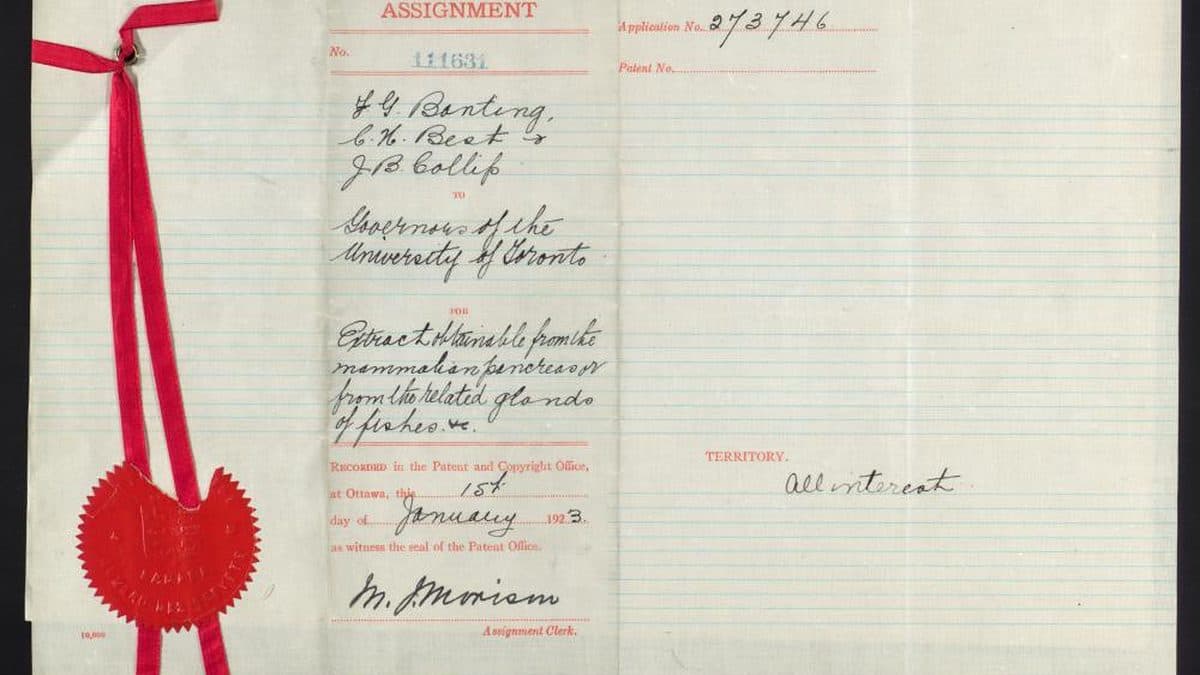 ASSIGNMENT
No. 111631
F G. Banting,
C. H. Best &
J B. Collip
TO
Governors of the
University of Toronto
FOR
Extract obtainable from the
mammalian pancreas or
from the related glands
of fishes. &c.
RECORDED in the Patent and Copyright Office,
at Ottawa, this 15th
day of January 1923.
as witness the seal of the Patent Office.
M. J. Morison
Assignment Clerk.
10,000
Application No. 273746
Patent No.
TERRITORY.
All interest
CANADA